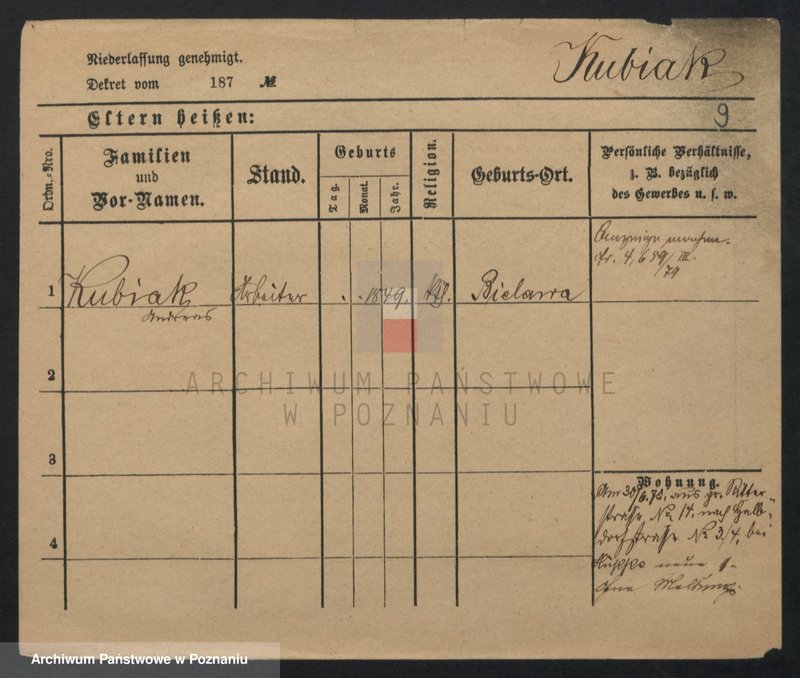 Niederlassung genehmigt.
Dekret vom 187 №
Kubiak
9
Eltern heißen:
Ordn.-Nro.
Familien
und
Vor-Namen.
Stand.
Geburts
Tag.
Monat.
Jahr.
Religion.
Geburts-Ort.
Persönliche Verhältnisse,
z. B. bezüglich
des Gewerbes u. s. w.
1 Kubiak Arbeiter . . 1849. kath. Bielawa
Andreas
Anzeige
4,659/III.
/79
2
ARCHIWUM PAŃSTWOWE
W POZNANIU
3
4
Wohnung.
Am 30/6.78. aus gr. Ritter-
straße No. 14. nach Halb-
dorfstraße No 3/4, bei
ohne
Archiwum Państwowe w Poznaniu